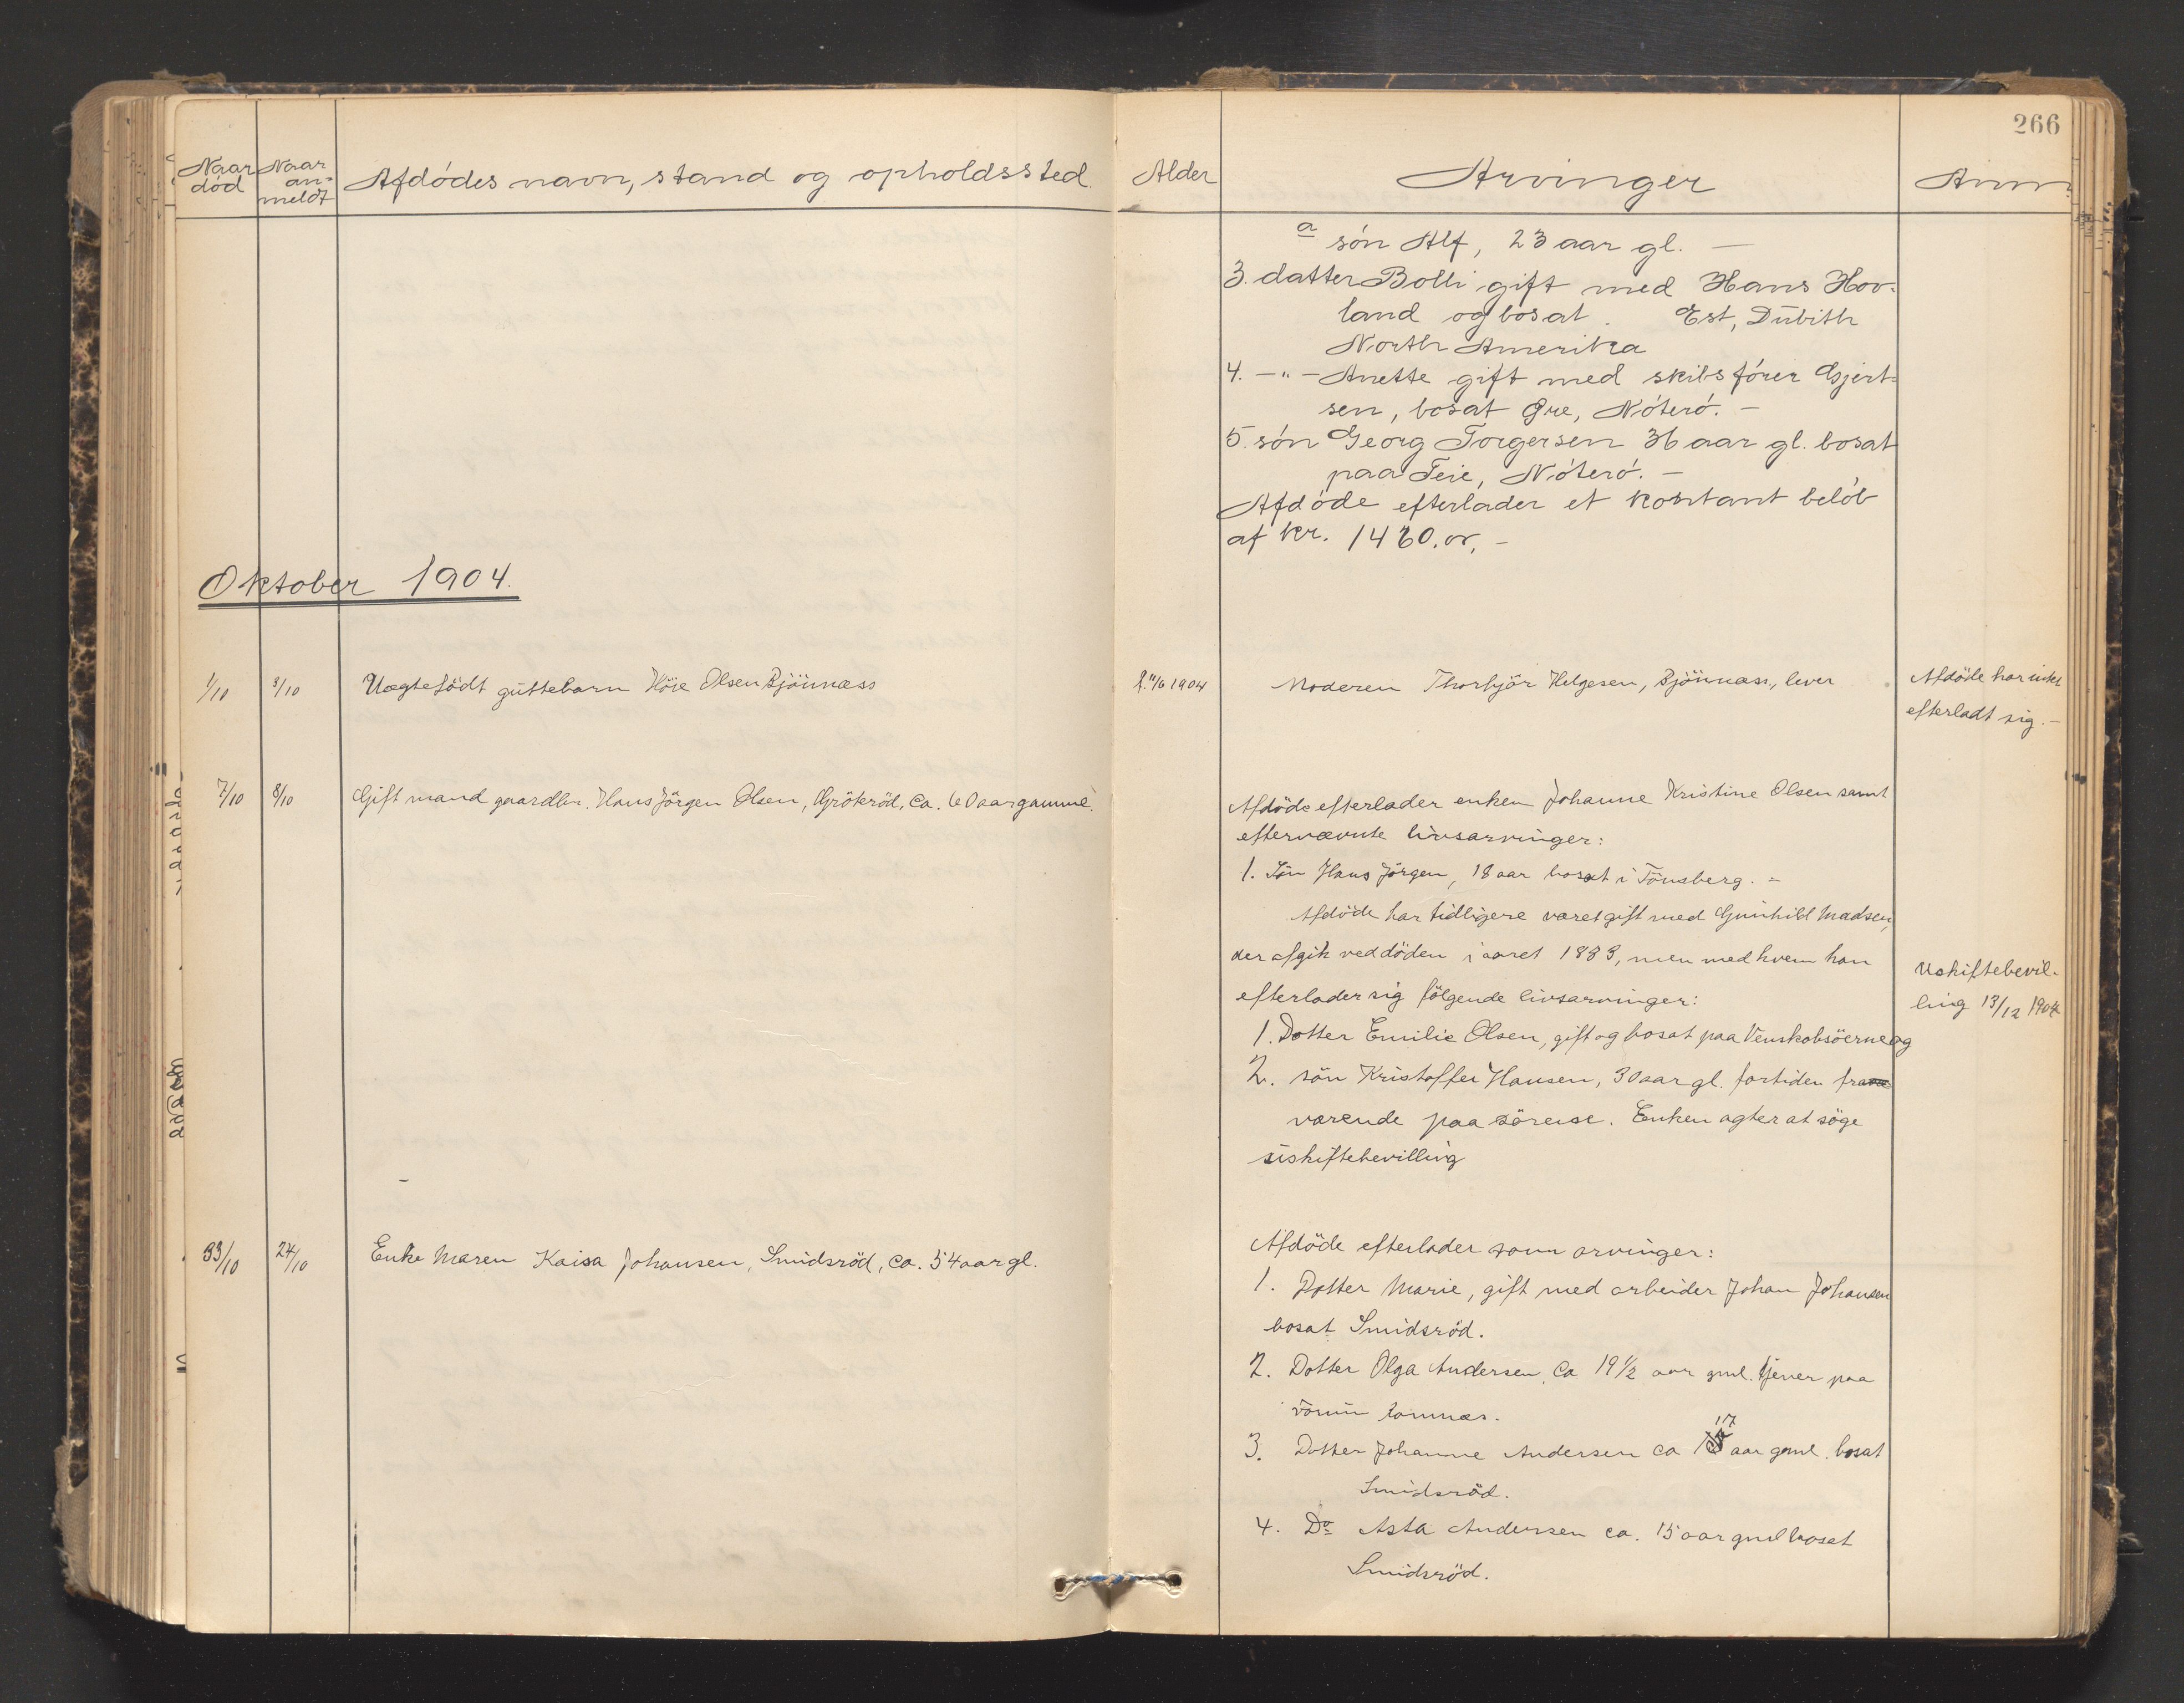 266
Naar død
Naar an-meldt
Afdødes navn, stand og opholdssted.
Alder
Arvinger
Anm
a søn Alf, 23 aar gl. —
3. datter Bolli gift med Hans Hov-
land og bosat. Est, Dubith
North Amerika
4. —"— Anette gift med skibsfører Gjert-
sen, bosat Øre, Nøterø. —
5. søn Georg Torgersen 36 aar gl. bosat
paa Teie, Nøterø. —
Afdøde efterlader et kontant beløb
af kr. 1480. or, —
Oktober 1904.
1/10
3/10
Uægtefödt guttebarn Höie Olsen Bjönnæss
f. 11/6 1904
Moderen Thorbjör Helgesen, Bjönnæss, lever
Afdöde har intet
efterladt sig. —
7/10
8/10
Gift mand gaardbr. Hans Jörgen Olsen, Grötsröd, ca. 60 aar gammel.
Afdöde efterlader enken Johanne Kristine Olsen samt
efternævnte livsarvinger:
1. Sön Hans Jörgen, 18 aar bosat i Tönsberg. =
Afdöde har tidligere været gift med Gunhild Madsen,
der afgik ved döden i aaret 1883, men med hvem han
efterlader sig fölgende livsarvinger:
1. Datter Emilie Olsen, gift og bosat paa Venskabsöerne og
2. sön Kristoffer Hansen, 30 aar gl. fortiden fra
værende paa söreise. Enken agter at söge
uskiftebevilling
Uskiftebevil-
ling 13/12 1904
23/10
24/10
Enke Maren Kaisa Johansen, Smidsröd, ca. 54 aar gl.
Afdöde efterlader som arvinger:
1. Datter Marie, gift med arbeider Johan Johansen
bosat Smidsröd.
2. Datter Olga Andersen, ca 19 1/2 aar gml. tjener paa
3. Datter Johanne Andersen ca 17 aar gml. bosat
Smidsröd.
4. Do Asta Andersen ca. 15 aar gml bosat
Smidsröd.